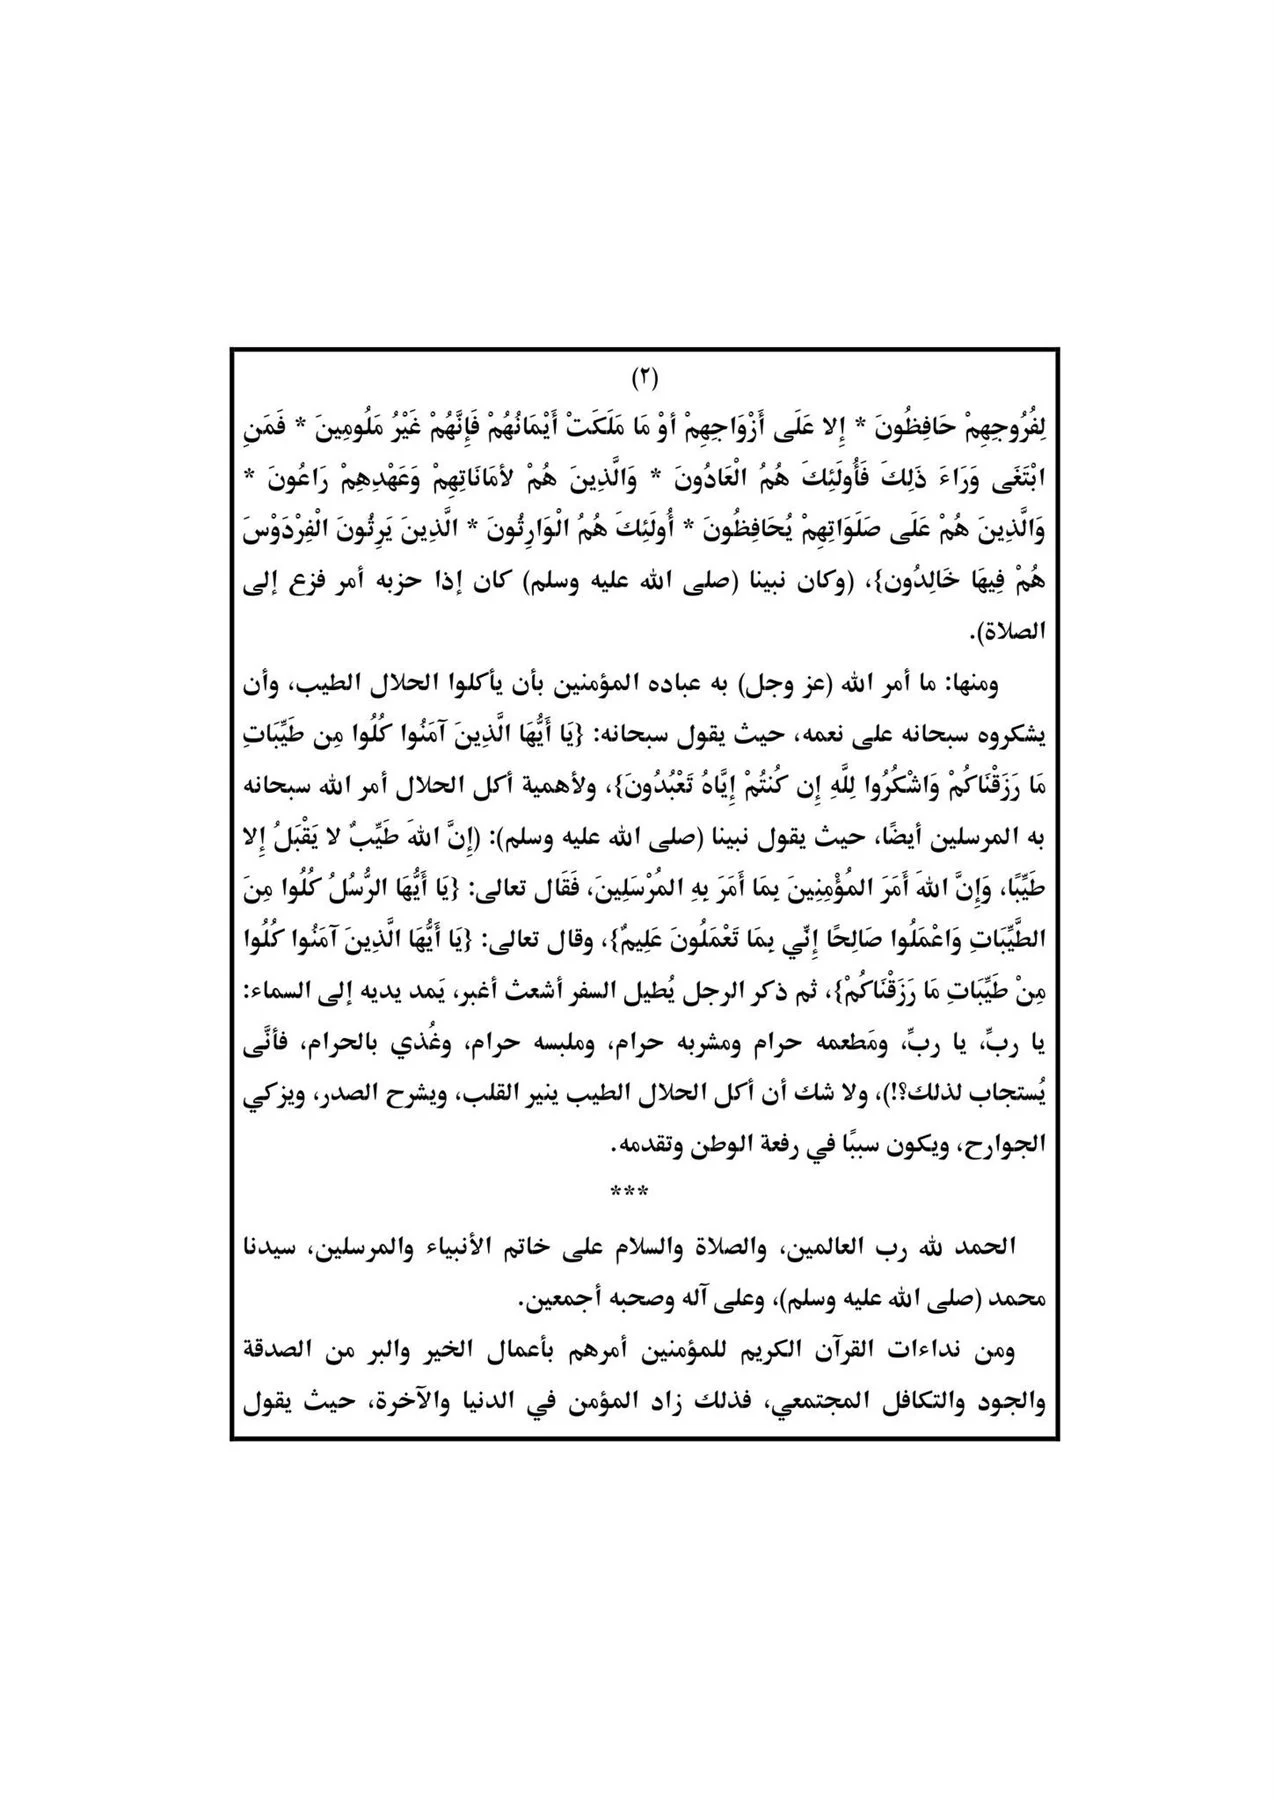 (٢)
لِفُرُوجِهِمْ حَافِظُونَ * إِلا عَلَى أَزْوَاجِهِمْ أوْ مَا مَلَكَتْ أَيْمَانُهُمْ فَإِنَّهُمْ غَيْرُ مَلُومِينَ * فَمَنِ
ابْتَغَى وَرَاءَ ذَلِكَ فَأُولَئِكَ هُمُ الْعَادُونَ * وَالَّذِينَ هُمْ لأمَانَاتِهِمْ وَعَهْدِهِمْ رَاعُونَ *
وَالَّذِينَ هُمْ عَلَى صَلَوَاتِهِمْ يُحَافِظُونَ * أُولَئِكَ هُمُ الْوَارِثُونَ * الَّذِينَ يَرِثُونَ الْفِرْدَوْسَ
هُمْ فِيهَا خَالِدُون}، (وكان نبينا (صلى الله عليه وسلم) كان إذا حزبه أمر فزع إلى
الصلاة).
ومنها: ما أمر الله (عز وجل) به عباده المؤمنين بأن يأكلوا الحلال الطيب، وأن
يشكروه سبحانه على نعمه، حيث يقول سبحانه: {يَا أَيُّهَا الَّذِينَ آمَنُوا كُلُوا مِن طَيِّبَاتِ
مَا رَزَقْنَاكُمْ وَاشْكُرُوا لِلَّهِ إِن كُنتُمْ إِيَّاهُ تَعْبُدُونَ}، ولأهمية أكل الحلال أمر الله سبحانه
به المرسلين أيضًا، حيث يقول نبينا (صلى الله عليه وسلم): (إِنَّ اللهَ طَيِّبٌ لا يَقْبَلُ إِلا
طَيِّبًا، وَإِنَّ اللهَ أَمَرَ المُؤْمِنِينَ بِمَا أَمَرَ بِهِ المُرْسَلِينَ، فَقَال تعالى: {يَا أَيُّهَا الرُّسُلُ كُلُوا مِنَ
الطَّيِّبَاتِ وَاعْمَلُوا صَالِحًا إِنِّي بِمَا تَعْمَلُونَ عَلِيمٌ}، وقال تعالى: {يَا أَيُّهَا الَّذِينَ آمَنُوا كُلُوا
مِنْ طَيِّبَاتِ مَا رَزَقْنَاكُمْ}، ثم ذكر الرجل يُطيل السفر أشعث أغبر، يَمد يديه إلى السماء:
يا ربِّ، يا ربِّ، ومَطعمه حرام ومشربه حرام، وملبسه حرام، وغُذي بالحرام، فأنَّى
يُستجاب لذلك؟!)، ولا شك أن أكل الحلال الطيب ينير القلب، ويشرح الصدر، ويزكي
الجوارح، ويكون سببًا في رفعة الوطن وتقدمه.
***
الحمد لله رب العالمين، والصلاة والسلام على خاتم الأنبياء والمرسلين، سيدنا
محمد (صلى الله عليه وسلم)، وعلى آله وصحبه أجمعين.
ومن نداءات القرآن الكريم للمؤمنين أمرهم بأعمال الخير والبر من الصدقة
والجود والتكافل المجتمعي، فذلك زاد المؤمن في الدنيا والآخرة، حيث يقول